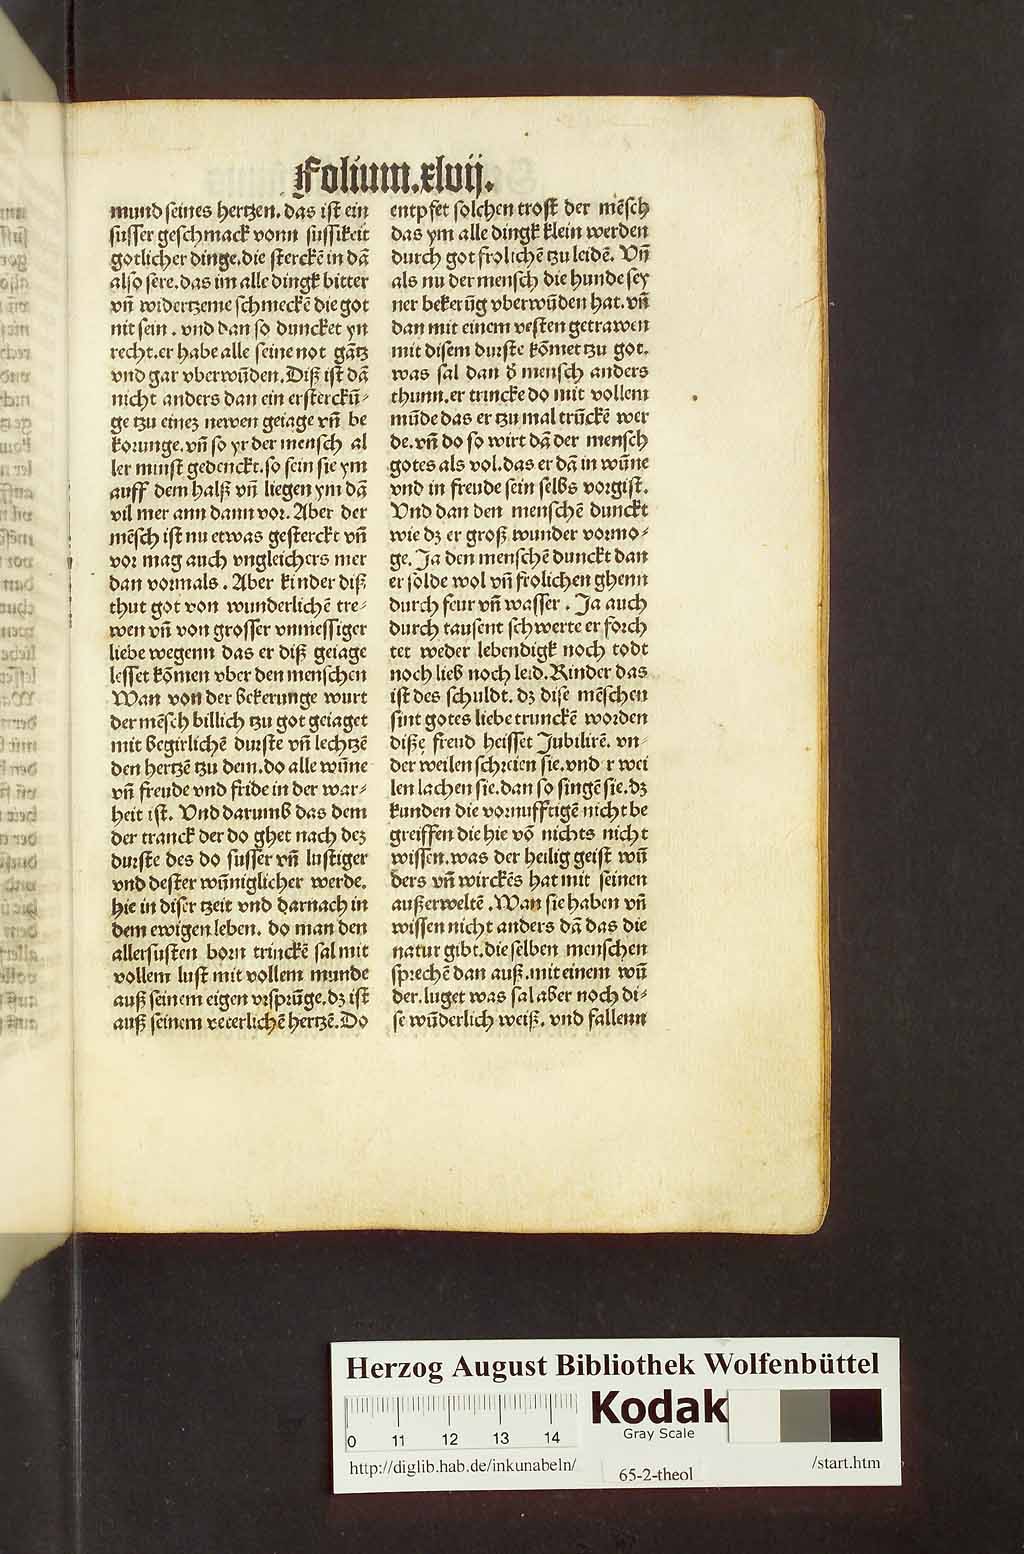 Folium.xlvij.
mund seines hertzen. das ist ein
susser geschmack vonn sussikeit
gotlicher dinge. die sterckē in dā
also sere. das im alle dingk bitter
vn̄ widertzeme schmeckē die got
nit sein. vnd dan so duncket yn
recht. er habe alle seine not gātz
vnd gar vberwūden. Diß ist dā
nicht anders dan ein ersterckū-
ge tzu einez newen geiage vn̄ be
korunge. vn̄ so yr der mensch al
ler minst gedenckt. so sein sie ym
auff dem halß vn̄ liegen ym dā
vil mer ann dann vor. Aber der
mēsch ist nu etwas gesterckt vn̄
vor mag auch vngleichers mer
dan vormals. Aber kinder diß
thut got von wunderlichē tre-
wen vn̄ von grosser vnmessiger
liebe wegenn das er diß geiage
lesset kōmen vber den menschen
Wan von der bekerunge wurt
der mēsch billich tzu got geiaget
mit begirlichē durste vn̄ lechtzē
den hertzē tzu dem. do alle wūne
vn̄ freude vnd fride in der war-
heit ist. Vnd darumb das dem
der tranck der do ghet nach dez
durste des do susser vn̄ lustiger
vnd dester wūniglicher werde.
hie in diser tzeit vnd darnach in
dem ewigen leben. do man den
allersusten born trinckē sal mit
vollem lust mit vollem munde
auß seinem eigen vrsprūge. dz ist
auß seinem veterlichē hertzē. Do
entpfet solchen trost der mēsch
das ym alle dingk klein werden
durch got frolichē tzu leidē. Vn̄
als nu der mensch die hunde sey
ner bekerūg vberwūden hat. vn̄
dan mit einem vesten getrawen
mit disem durste kōmet tzu got.
was sal dan d̄ mensch anders
thunn. er trincke do mit vollem
mūde das er tzu mal trūckē wer
de. vn̄ do so wirt dā der mensch
gotes als vol. das er dā in wūne
vnd in freude sein selbs vorgist.
Vnd dan den menschē dunckt
wie dz er groß wunder vormo-
ge. Ja den menschē dunckt dan
er solde wol vn̄ frolichen ghenn
durch feur vn̄ wasser. Ja auch
durch tausent schwerte er forch
tet weder lebendigk noch todt
noch lieb noch leid. Kinder das
ist des schuldt. dz dise mēschen
sint gotes liebe trunckē worden
diße freud heisset Jubilirē. vn-
der weilen schreien sie. vnd r wei
len lachen sie. dan so singē sie. dz
kunden die vornufftigē nicht be
greiffen die hie vō nichts nicht
wissen. was der heilig geist wū
ders vn̄ wirckēs hat mit seinen
außerweltē. Wan sie haben vn̄
wissen nicht anders dā das die
natur gibt. die selben menschen
sprechē dan auß. mit einem wū
der. luget was sal aber noch di-
se wūderlich weiß. vnd fallenn
Herzog August Bibliothek Wolfenbüttel
0 11 12 13 14
Kodak
Gray Scale
http://diglib.hab.de/inkunabeln/
65-2-theol
/start.htm